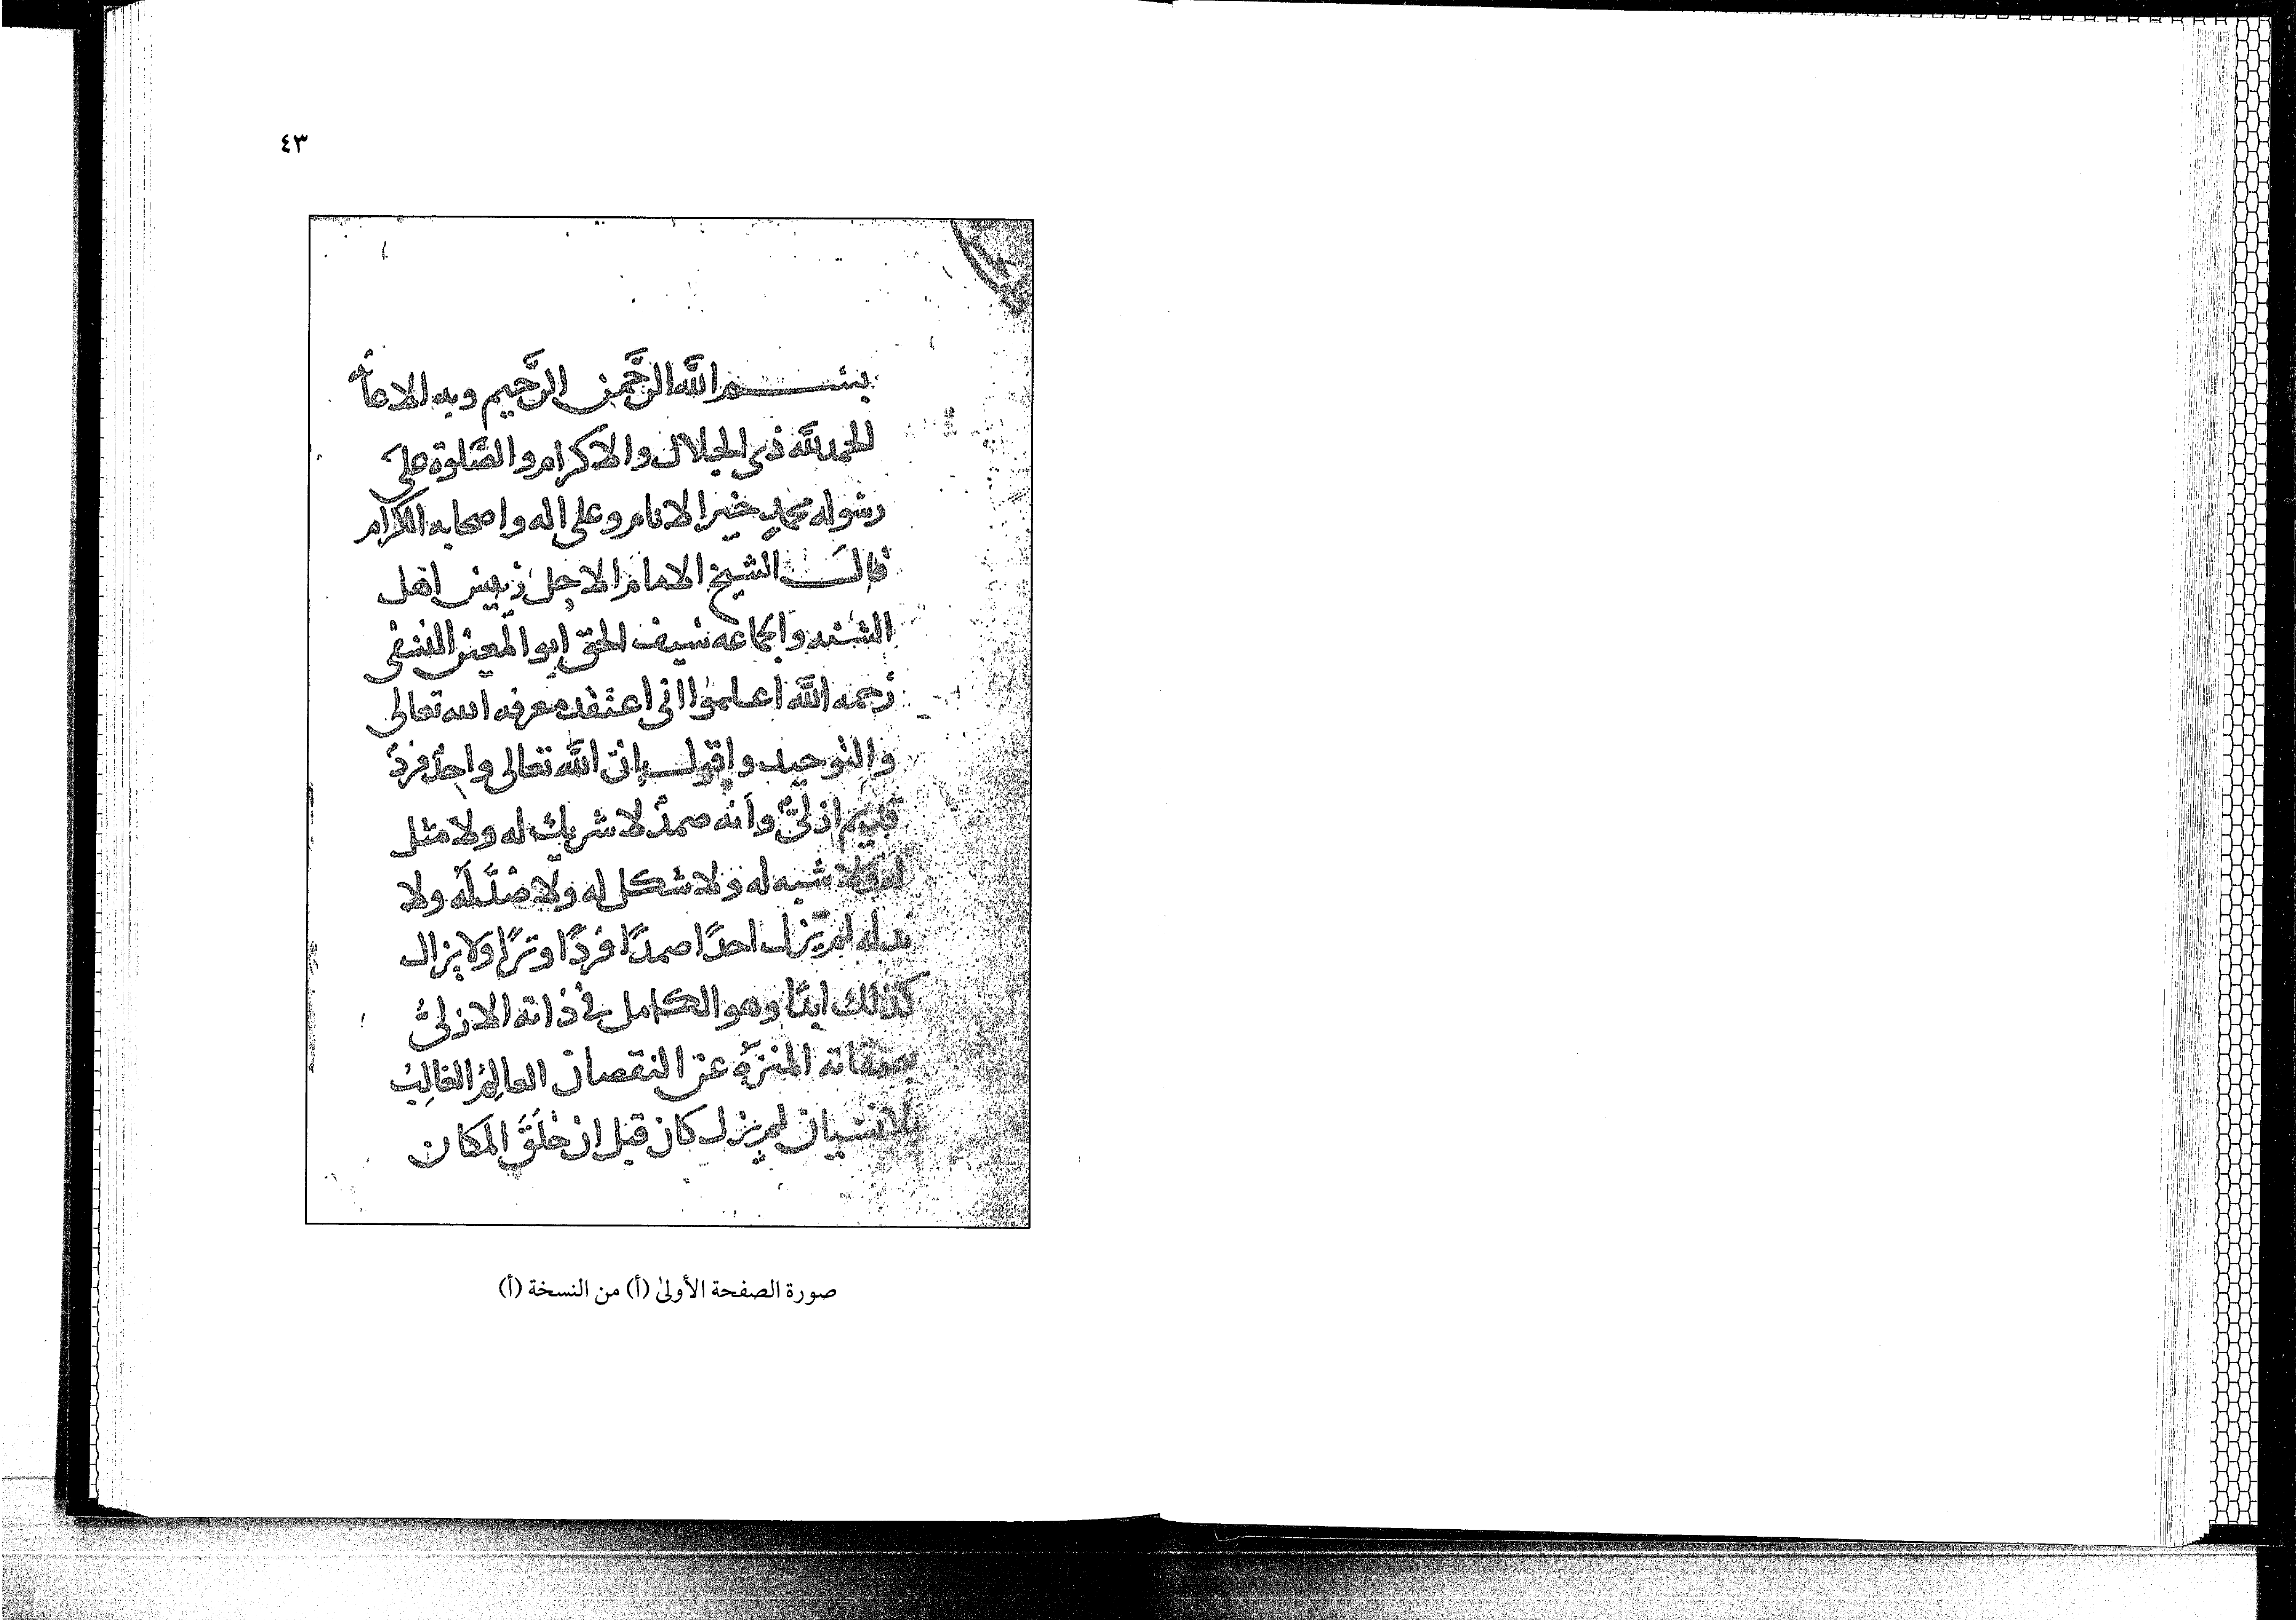 ٤٣
بسم الله الرحمن الرحيم وبه الاعانه
الحمد لله ذى الجلال والاكرام والصلوة على
رسوله محمدٍ خير الانام وعلى اله واصحابه الكرام
قال الشيخ الامام الاجل رييس اهل
السنه والجماعه سيف الحق ابو المعين النسفى
رحمه الله اعلموا انى اعتقد معرفه الله تعالى
والتوحيد واقول بان الله تعالى واحدٌ فردٌ
قديم ازلىٌّ وانه صمدٌ لا شريك له ولا مثل
له ولا شبه له ولا شكل له ولا ضدَّ لَهُ ولا
ند له لم يزل احدًا صمدًا فردًا وترًا ولا يزال
كذلك ابدًا وهو الكامل في ذاته الازلىُّ
بصفاته المنزهُ عن النقصان العالِمُ الغالِبُ
بلا نسيان لم يزل كان قبل ان خَلَقَ المكان
صورة الصفحة الأولىٰ (أ) من النسخة (أ)